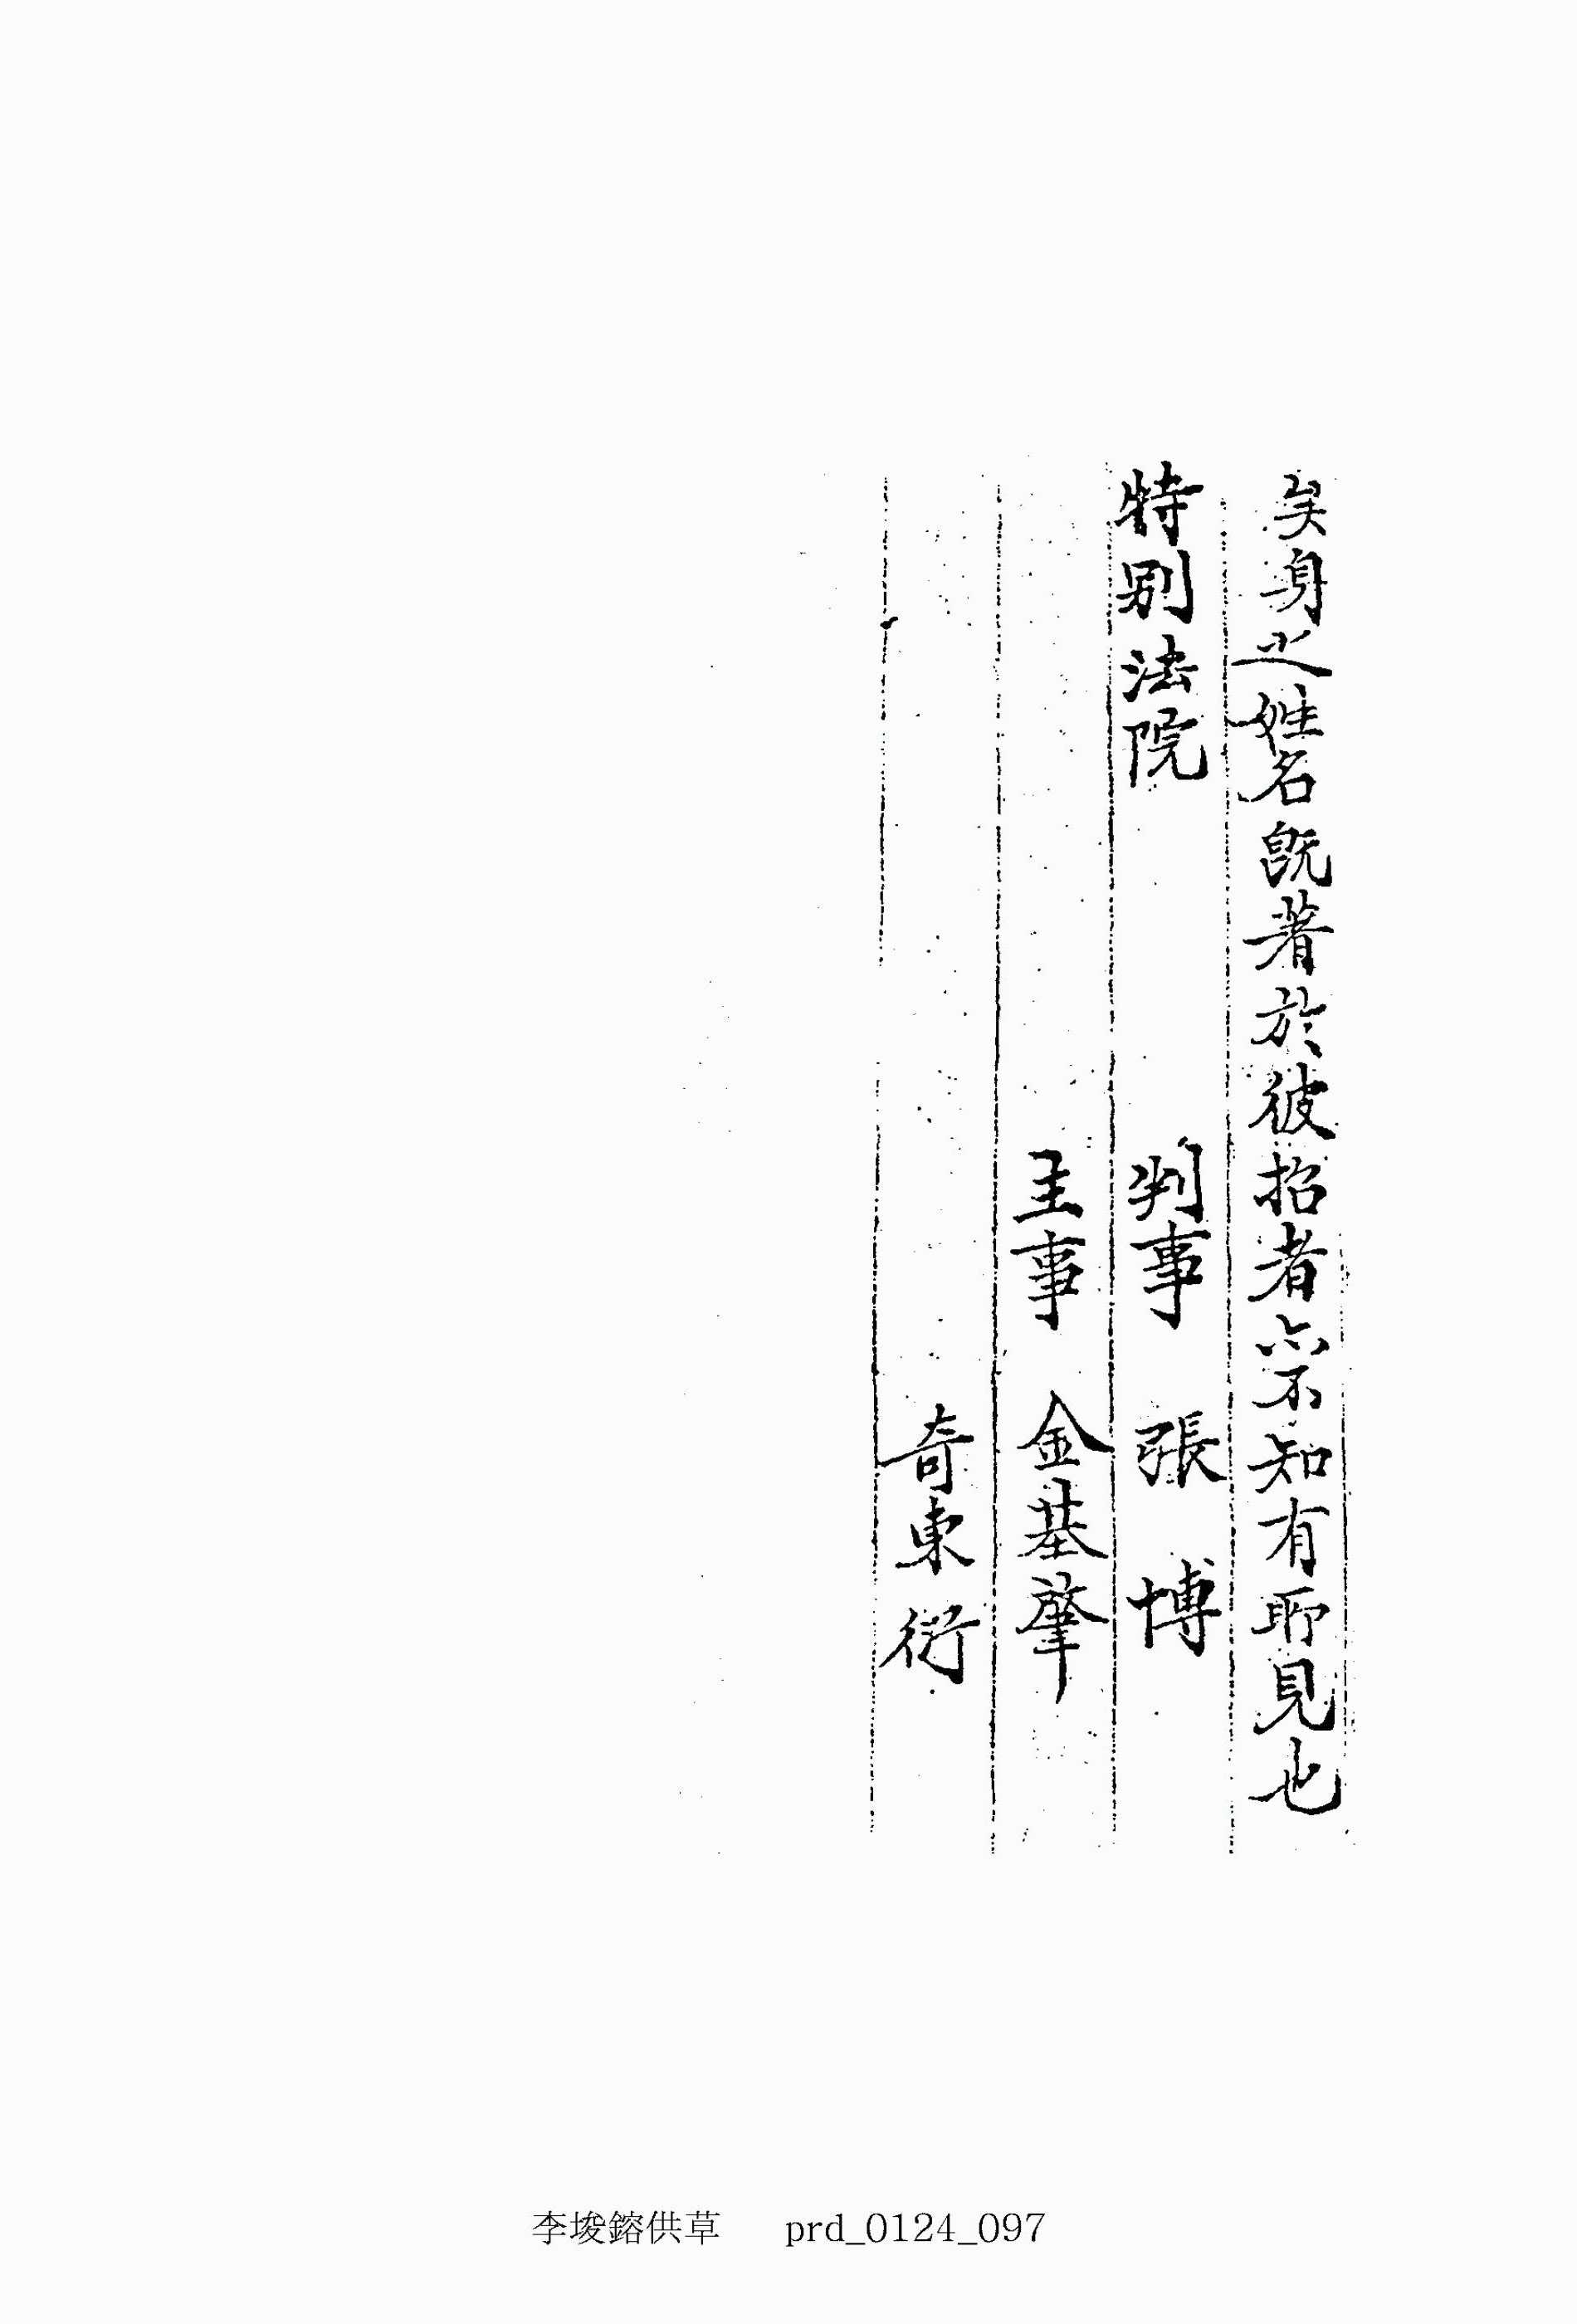 矣身之姓名旣著於彼招者亦不知有所見也
特別法院 判事 張 博
主事 金基肇
奇東衍
李埈鎔供草 prd_0124_097